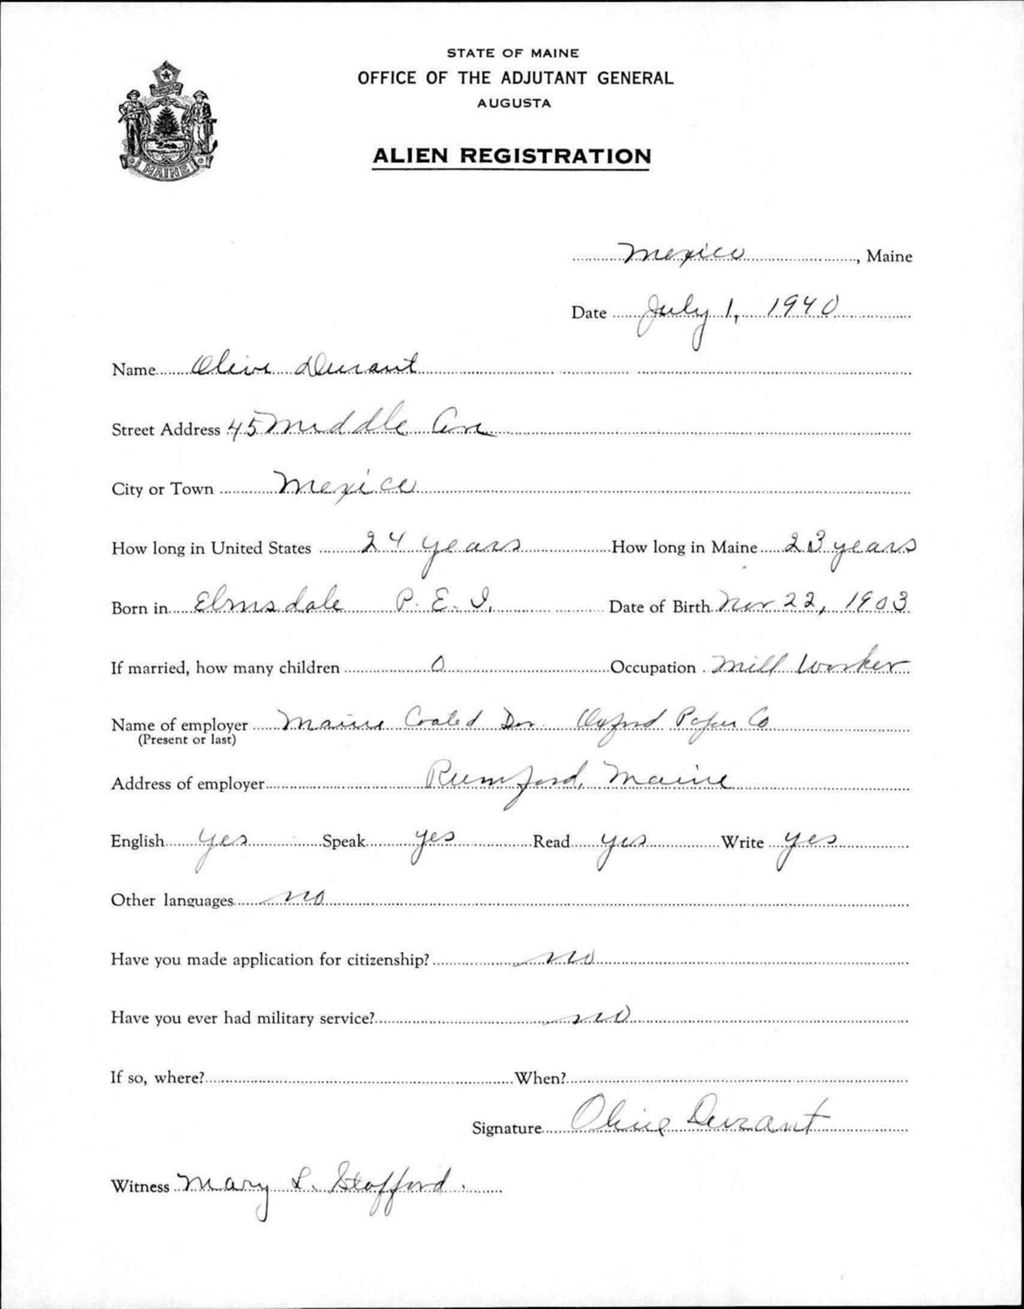 STATE OF MAINE
OFFICE OF THE ADJUTANT GENERAL
AUGUSTA
ALIEN REGISTRATION
MAINE
Mexico, Maine
Date July 1, 1940
Name Olive Durant
Street Address 45 Middle Ave
City or Town Mexico
How long in United States 24 years How long in Maine 23 years
Born in Elmsdale P. E. I. Date of Birth Nov 22, 1903
If married, how many children 0 Occupation Mill Worker
Name of employer Maine Coated Div. Oxford Paper Co
(Present or last)
Address of employer Rumford, Maine
English yes Speak yes Read yes Write yes
Other languages no
Have you made application for citizenship? no
Have you ever had military service? no
If so, where? When?
Signature Olive Durant
Witness Mary L. Stafford.